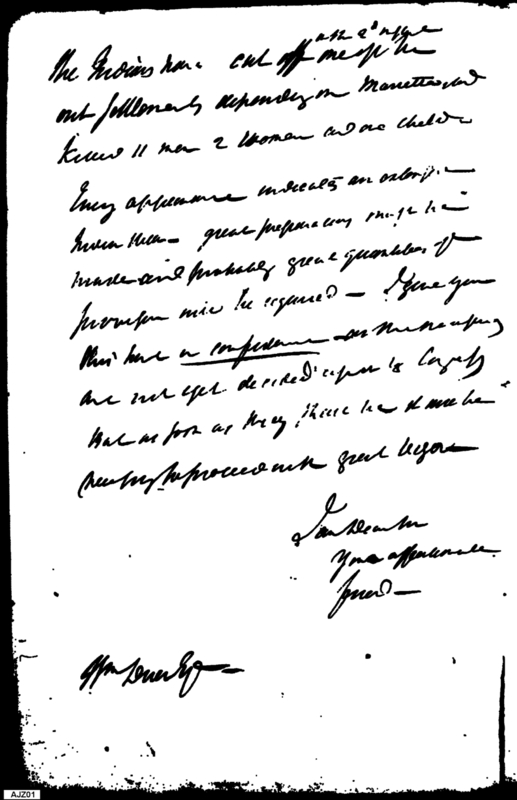 on the 2d instant
The Indians have cut off one of the
out settlements depending on Marietta and
Killed 11 men 2 Women and one child
Every appearance indicates an extensive
Indian War – great preparations must be
made and probably great quantities of
provisions will be required – I give you
this hint in confidence – as the measures
are not yet decided upon by Congress
But as soon as they shall be it will be
necessary to proceed with great vigor
I am Dear Sir
Your affectionate
friend –
Wm Duer Esqr –
AJZ01